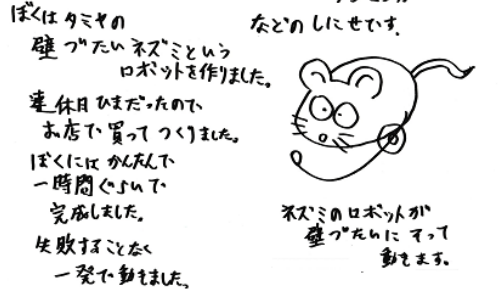 ぼくはタミヤの
壁づたいネズミという
ロボットを作りました。
連休日ひまだったので
お店で買ってつくりました。
ぼくにはかんたんで
一時間ぐらいで
完成しました。
失敗することなく
一発で動きました。
などのしにせです。
ネズミのロボットが
壁づたいにそって
動きます。